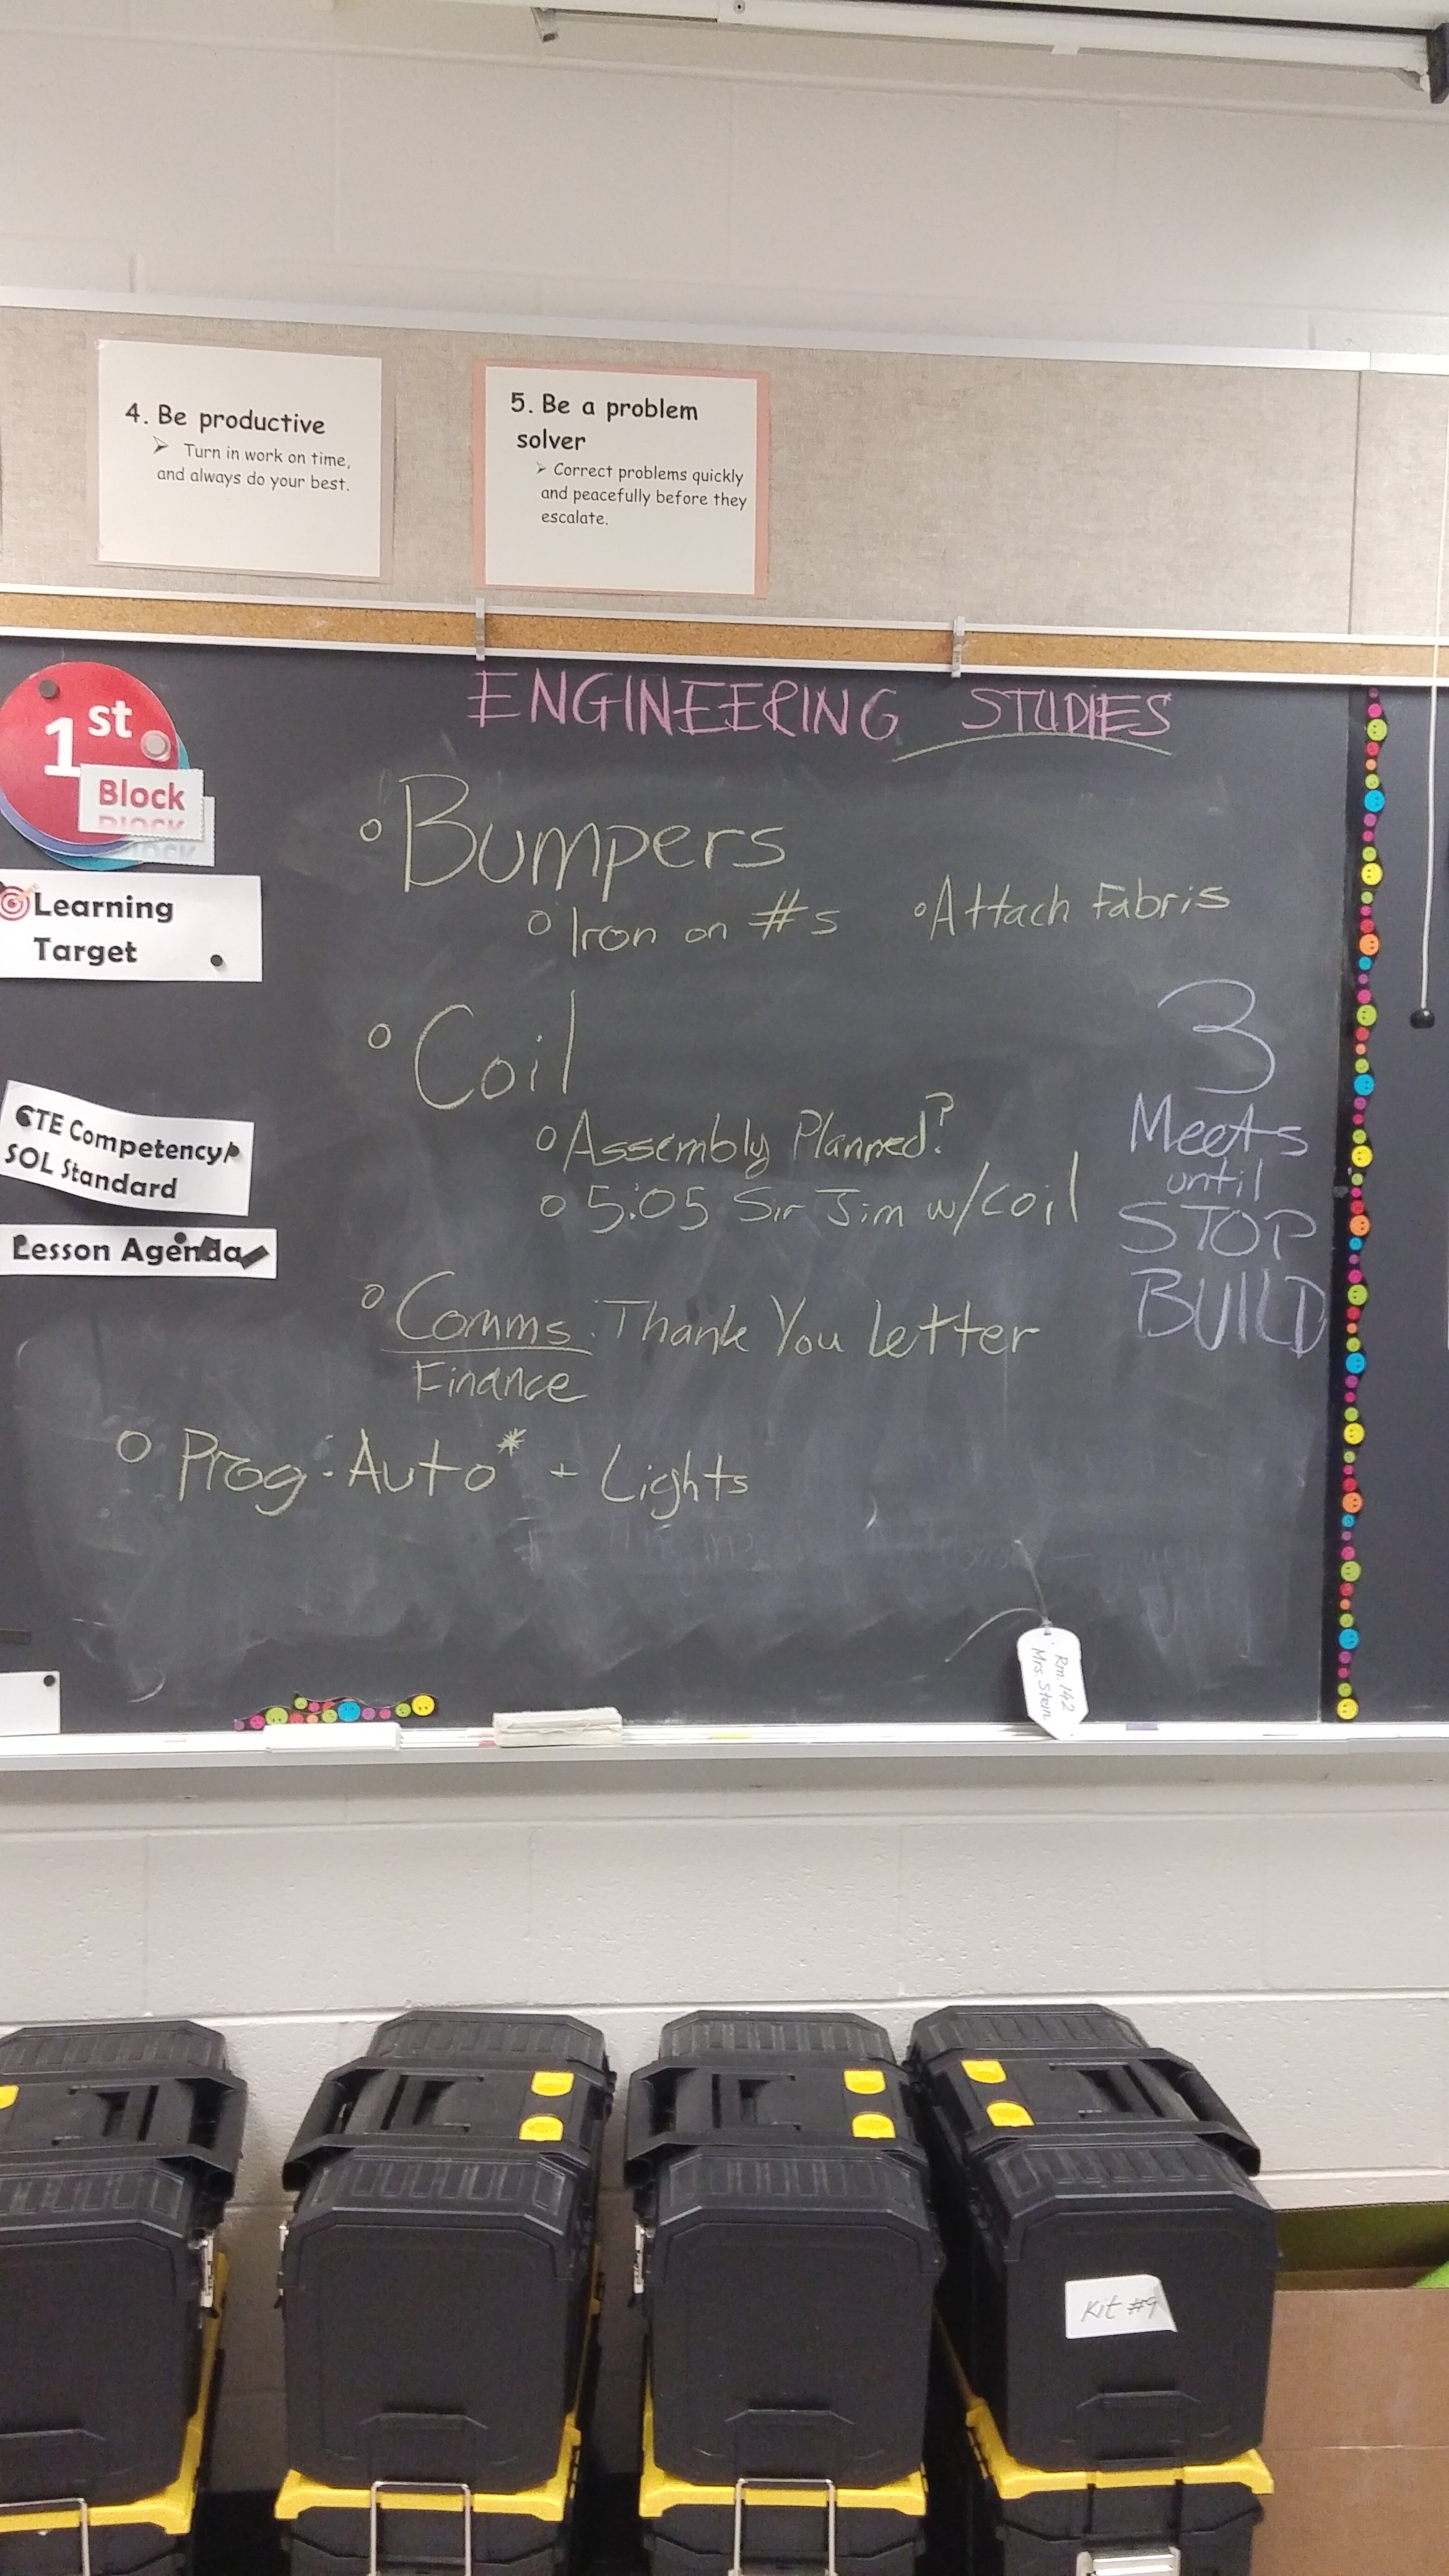 4. Be productive
➢ Turn in work on time,
and always do your best.
5. Be a problem
solver
➢ Correct problems quickly
and peacefully before they
escalate.
1st
Block
Learning
Target
CTE Competency/
SOL Standard
Lesson Agenda
ENGINEERING STUDIES
Bumpers
Iron on #s
Attach Fabris
Coil
Assembly Planned?
5:05 Sir Jim w/coil
Comms: Thank You Letter
Finance
Prog: Auto* + Lights
3
Meets
until
STOP
BUILD
Rm. 142
Mrs. Stein
Kit #9